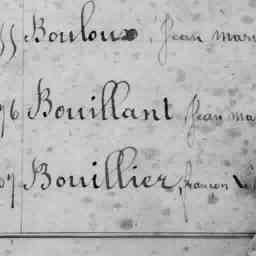 55 Bouloux, Jean Mari
76 Bouillant, Jean Ma
Bouillier, francon